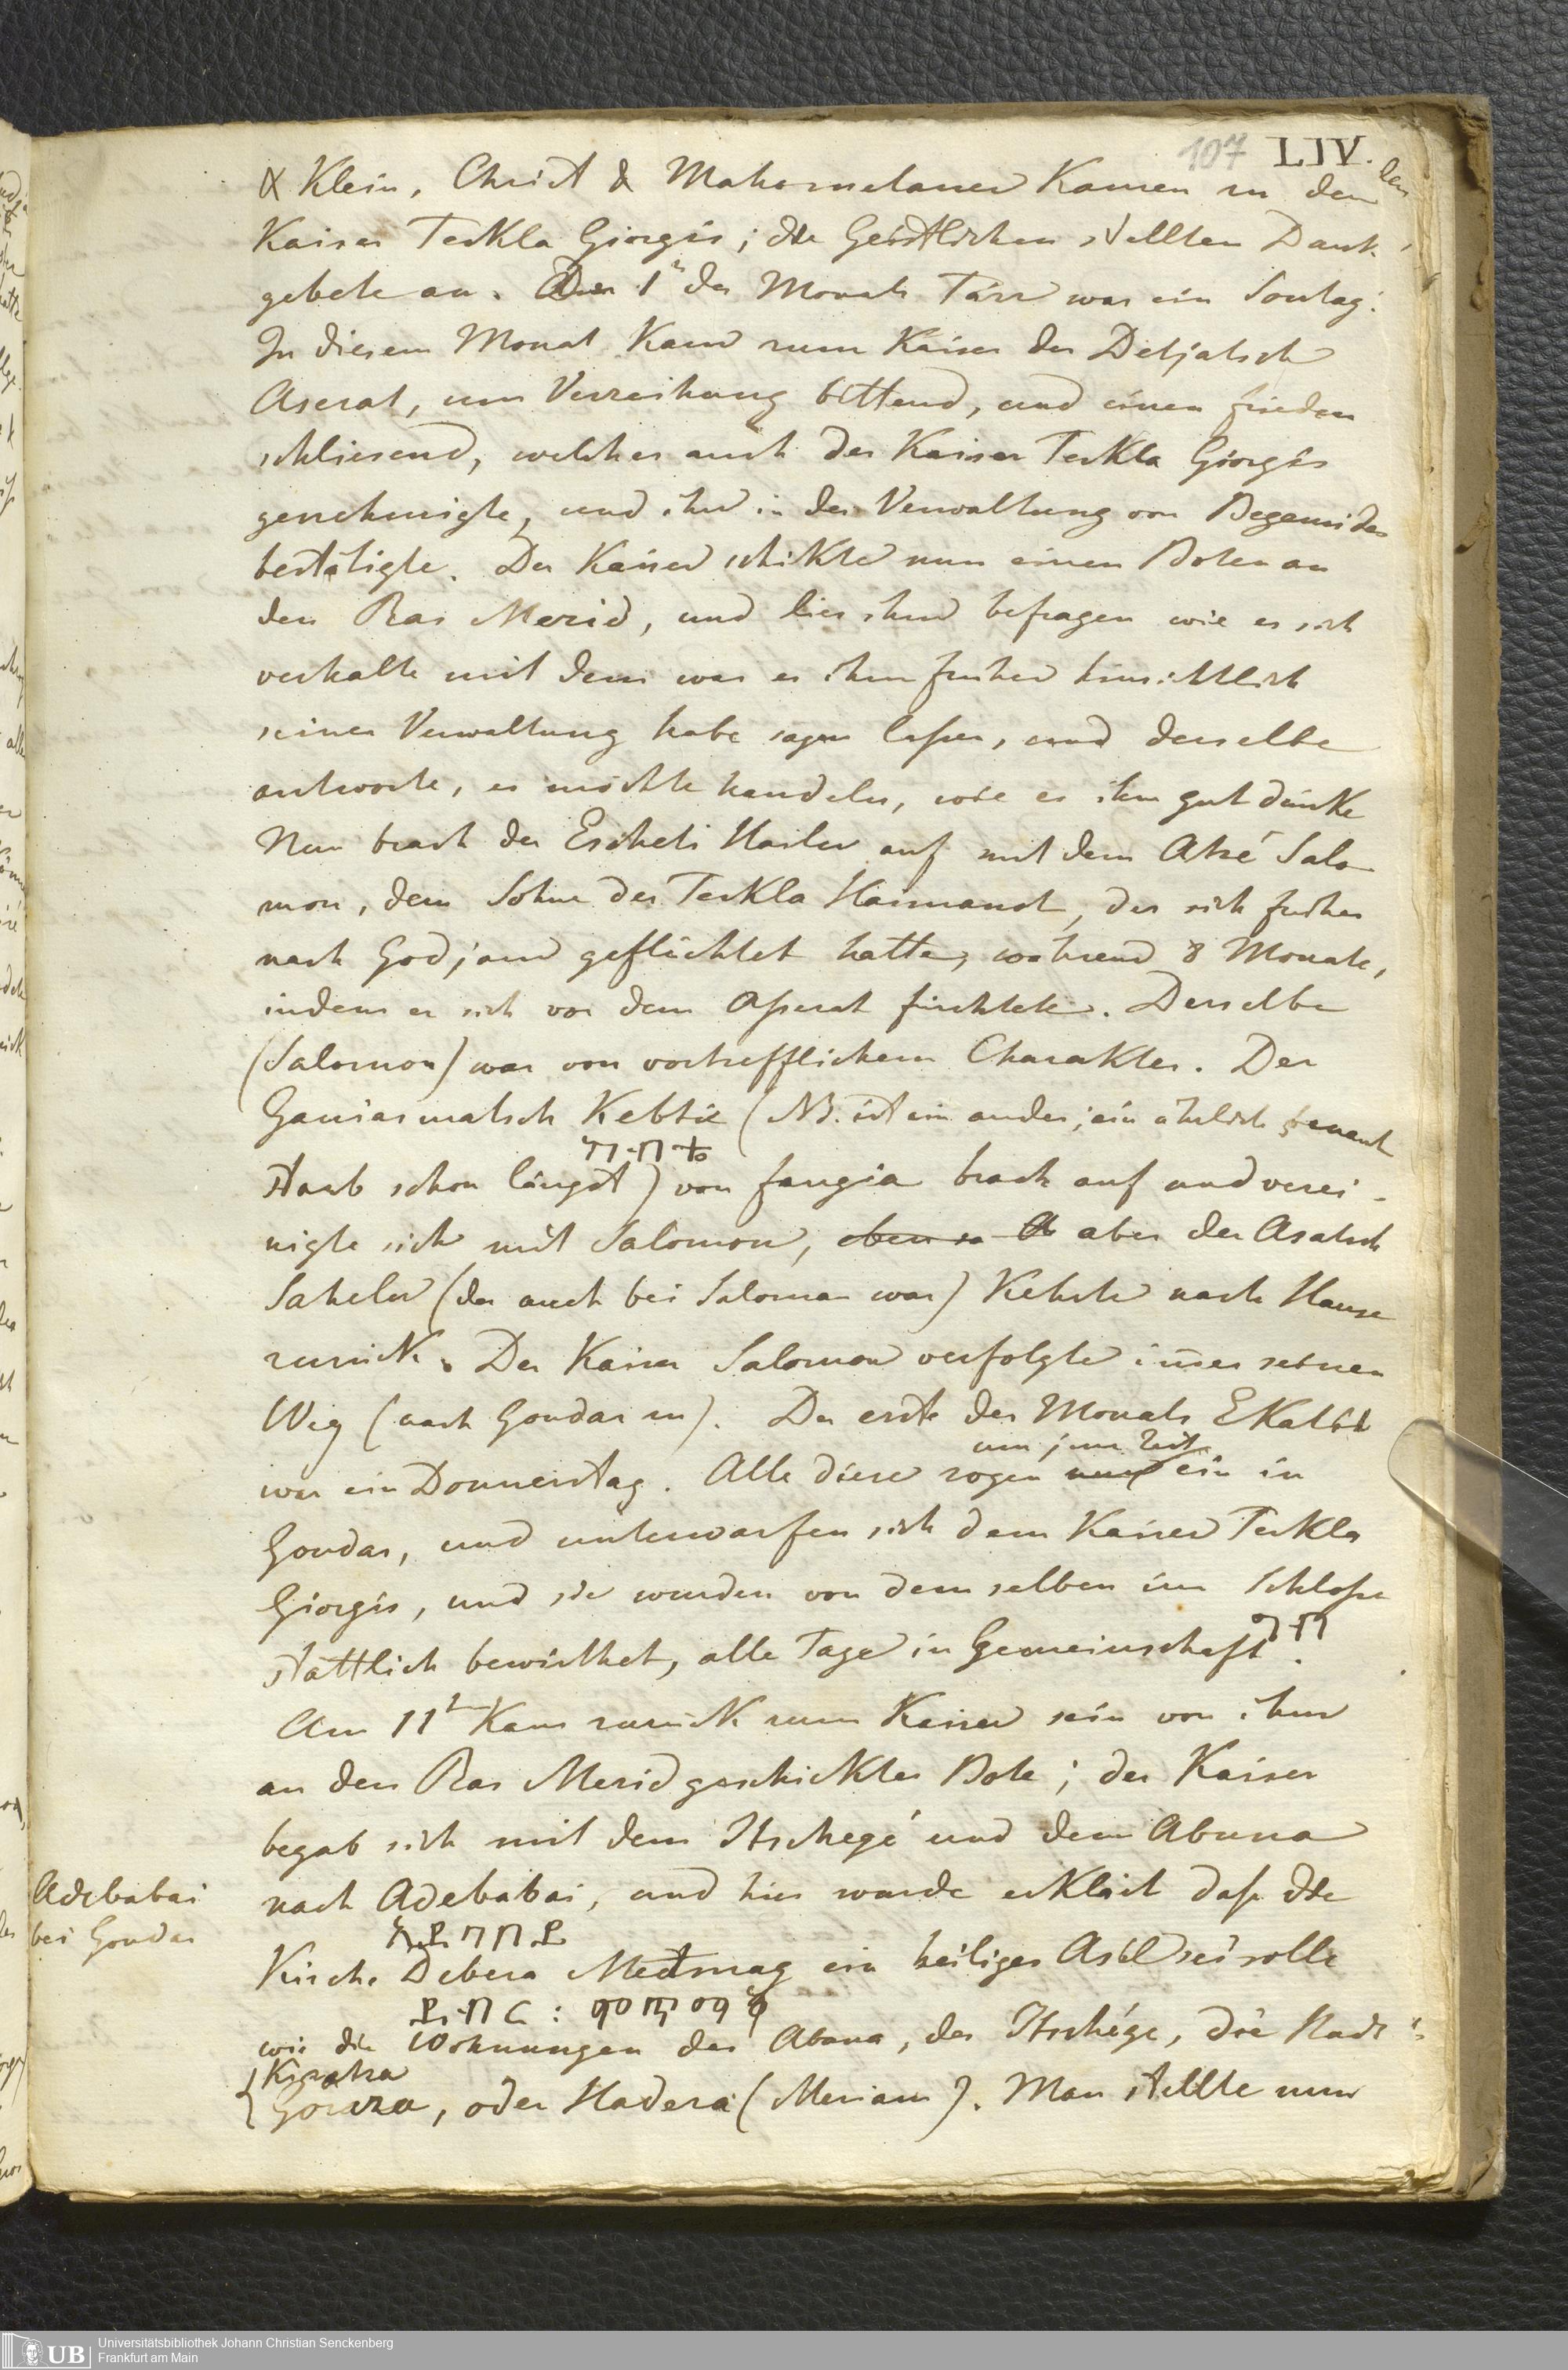 107 LIV.
& Klein, Christ & Mahomedaner Kamen zu dem
Kaiser Tekla Giorgis; die Geistlichen stellten Dank-
gebete an. Der 1r des Monats Tärr war ein Sontag.
In diesem Monat Kam zum Kaiser der Detjatsch
Aserat, um Verzeihung bittend, und einen frieden
schliesend, welches auch der Kaiser Tekla Giorgis
genehmigte, und ihn in der Verwaltung von Begemider
bestätigte. Der Kaiser schikte nun einen Boten an
den Ras Merid, und lies ihn befragen wie es sich
verhalte mit dem was er ihm früher hinsichtlich
seiner Verwaltung habe sagen lassen, und derselbe
antworte, er möchte handeln, wie es ihm gut dünke
Nun brach der Escheti Hailu auf mit dem Atsé Salo-
mon, dem Sohne des Tekla Haimanot, der sich früher
nach Godjam geflüchtet hatte, während 8 Monate,
indem er sich vor dem Asserat fürchtete. Derselbe
(Salomon) war von vortrefflichem Charakter. Der
Ganiasmatsch Kebtie (NB. ist ein ander; ein ähnlich genent
ካብቴ
starb schon längst) von fangia brach auf und verei-
nigte sich mit Salomon, eben so aber der Asalsch
Sahelu (der auch bei Saloman war) Kehrte nach Hause
zurück. Der Kaiser Salomon verfolgte im̄er seinen
Weg (nach Gondar zu). Der erste des Monats EKatit
um jene Zeit
war ein Donnerstag. Alle diese zogen nun ein in
Gondar, und unterwarfen sich dem Kaiser Tekla
Giorgis, und sie wurden von demselben im Schlosse
ግብ
stattlich bewirthet, alle Tage in Gemeinschaft.
Am 11t Kam zurück zum Kaiser sein von ihm
an den Ras Merid geschickter Bote; der Kaiser
begab sich mit dem Itschegé und dem Abuna
nach Adebabai, und hier wurde erklärt dass die
Adebabai
bei Gondar
Kirche Debera Metmag ein heiliges Asil sei solle
wie die Wohnungen des Abuna, des Itschége, die Stadt
Goraza, oder Hadera (Meriam). Man stellte nun